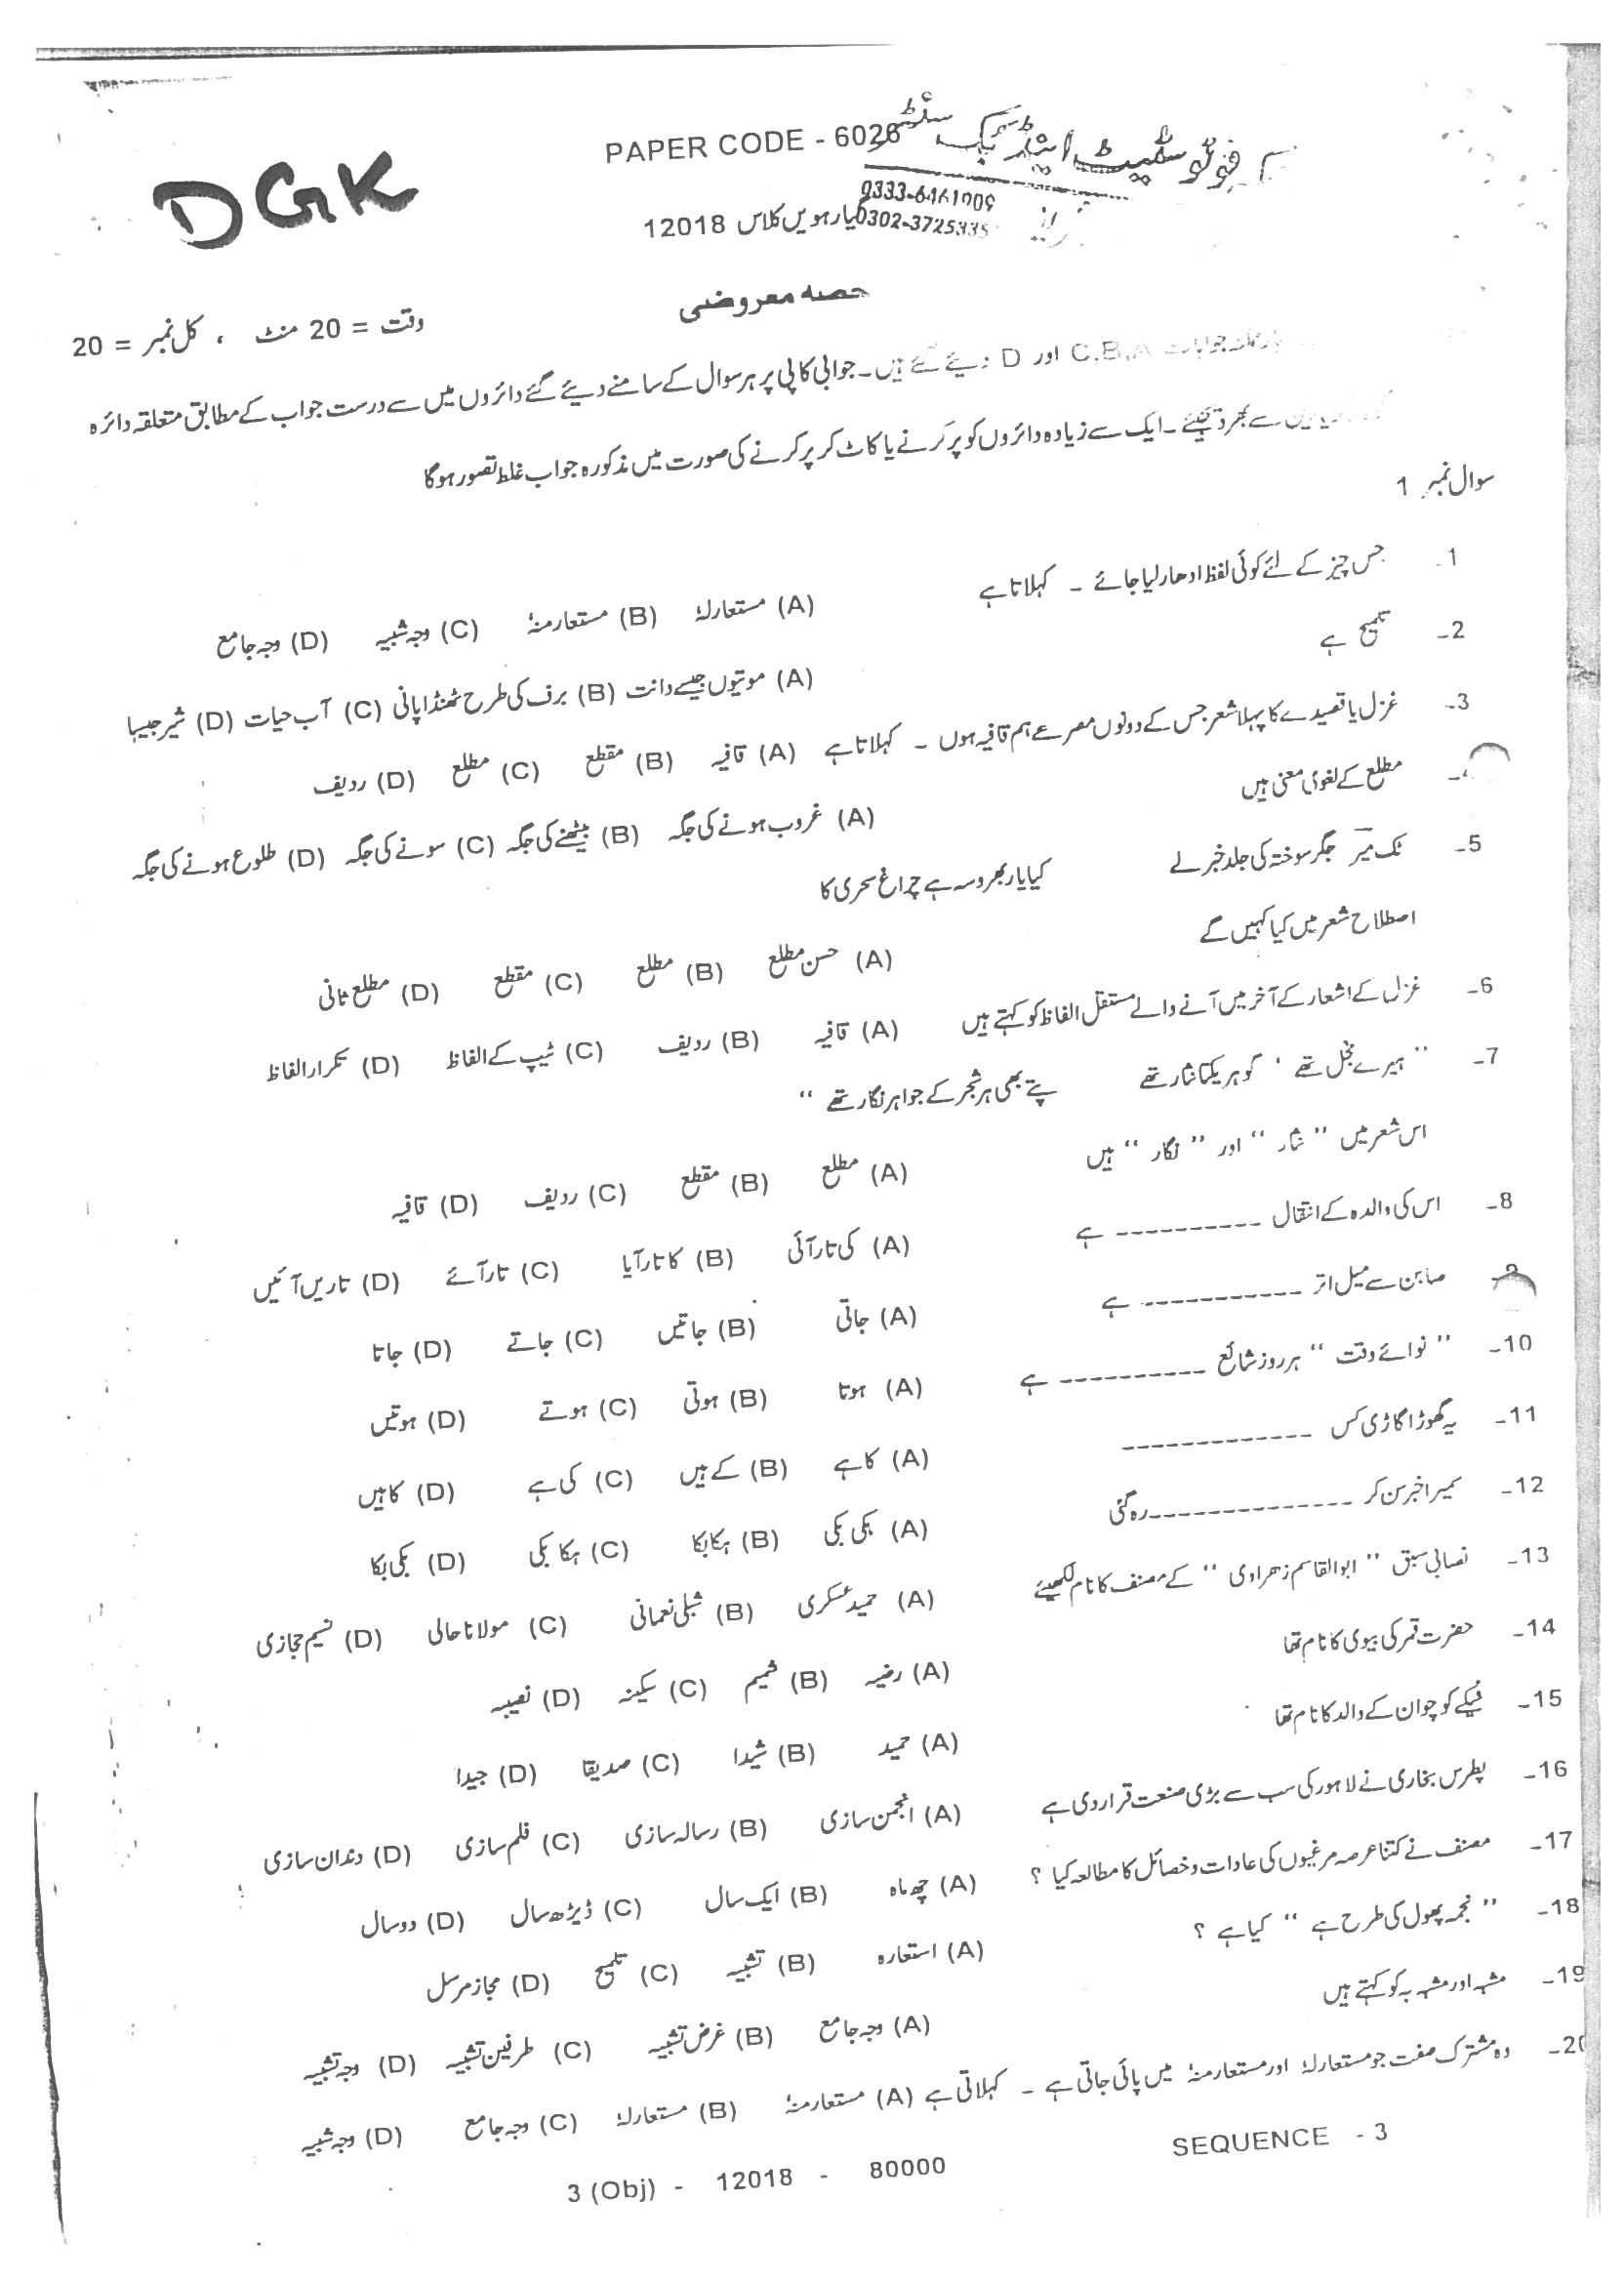 DGK
PAPER CODE - 6026
فوٹو سٹیٹ اینڈ بک سنٹر
0333-6461009
0302-3725335
گیارھویں کلاس 12018
حصہ معروضی
وقت = 20 منٹ ، کل نمبر = 20
جوابات C,B,A اور D دیئے گئے ہیں۔ جوابی کاپی پر ہر سوال کے سامنے دیئے گئے دائروں میں سے درست جواب کے مطابق متعلقہ دائرہ
سے بھر دیجئے۔ ایک سے زیادہ دائروں کو پر کرنے یا کاٹ کر پر کرنے کی صورت میں مذکورہ جواب غلط تصور ہوگا
سوال نمبر 1
1۔ جس چیز کے لئے کوئی لفظ ادھار لیا جائے ۔ کہلاتا ہے
(A) مستعارلہٗ (B) مستعارمنہٗ (C) وجہ شبیہ (D) وجہ جامع
2۔ تلمیح ہے
(A) موتیوں جیسے دانت (B) برف کی طرح ٹھنڈا پانی (C) آب حیات (D) شیر جیسا
3۔ غزل یا قصیدے کا پہلا شعر جس کے دونوں مصرعے ہم قافیہ ہوں ۔ کہلاتا ہے (A) قافیہ (B) مقطع (C) مطلع (D) ردیف
مطلع کے لغوی معنی ہیں
(A) غروب ہونے کی جگہ (B) بیٹھنے کی جگہ (C) سونے کی جگہ (D) طلوع ہونے کی جگہ
5۔ ٹک میر جگر سوختہ کی جلد خبر لے کیا یار بھروسہ ہے چراغ سحری کا
اصطلاح شعر میں کیا کہیں گے
(A) حسن مطلع (B) مطلع (C) مقطع (D) مطلع ثانی
6۔ غزل کے اشعار کے آخر میں آنے والے مستقل الفاظ کو کہتے ہیں (A) قافیہ (B) ردیف (C) ٹیپ کے الفاظ (D) تکرار الفاظ
7۔ " ہیرے نجل تھے ' گوہر یکتا نثار تھے پتے بھی ہر شجر کے جواہر نگار تھے "
اس شعر میں " نثار " اور " نگار " ہیں
(A) مطلع (B) مقطع (C) ردیف (D) قافیہ
8۔ اس کی والدہ کے انتقال ---------- ہے
(A) کی تار آئی (B) کا تار آیا (C) تار آئے (D) تاریں آئیں
9۔ صابن سے میل اتر ----------- ہے
(A) جاتی (B) جاتیں (C) جاتے (D) جاتا
10۔ " نوائے وقت " ہر روز شائع ---------- ہے
(A) ہوتا (B) ہوتی (C) ہوتے (D) ہوتیں
11۔ یہ گھوڑا گاڑی کس -------------
(A) کا ہے (B) کے ہیں (C) کی ہے (D) کا ہیں
12۔ سمیرا خبر سن کر -------------- رہ گئی
(A) بکی بکی (B) ہکا بکا (C) ہکا بکی (D) بکی بکا
13۔ نصابی سبق " ابوالقاسم زھراوی " کے مصنف کا نام لکھیئے
(A) حمید عسکری (B) شبلی نعمانی (C) مولانا حالی (D) نسیم حجازی
14۔ حضرت قمر کی بیوی کا نام تھا
(A) رضیہ (B) شمیم (C) سکینہ (D) نصیبہ
15۔ فیکے کوچوان کے والد کا نام تھا
(A) حمید (B) شیدا (C) صدیقا (D) جیدا
16۔ پطرس بخاری نے لاہور کی سب سے بڑی صنعت قرار دی ہے
(A) انجمن سازی (B) رسالہ سازی (C) فلم سازی (D) دندان سازی
17۔ مصنف نے کتنا عرصہ مرغیوں کی عادات و خصائل کا مطالعہ کیا ؟
(A) چھ ماہ (B) ایک سال (C) ڈیڑھ سال (D) دو سال
18۔ " نجمہ پھول کی طرح ہے " کیا ہے ؟
(A) استعارہ (B) تشبیہ (C) تلمیح (D) مجاز مرسل
19۔ مشبہ اور مشبہ بہ کو کہتے ہیں
(A) وجہ جامع (B) غرض تشبیہ (C) طرفین تشبیہ (D) وجہ تشبیہ
20۔ وہ مشترک صفت جو مستعارلہٗ اور مستعارمنہٗ میں پائی جاتی ہے ۔ کہلاتی ہے (A) مستعارمنہٗ (B) مستعارلہٗ (C) وجہ جامع (D) وجہ شبیہ
SEQUENCE - 3
3 (Obj) - 12018 - 80000